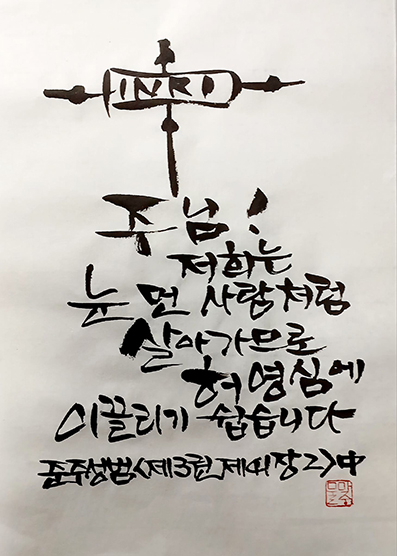 INRI
주님!
저희는
눈 먼 사람처럼
살아가므로
허영심에
이끌리기 쉽습니다
준주성범<제3권 제41장 2>中